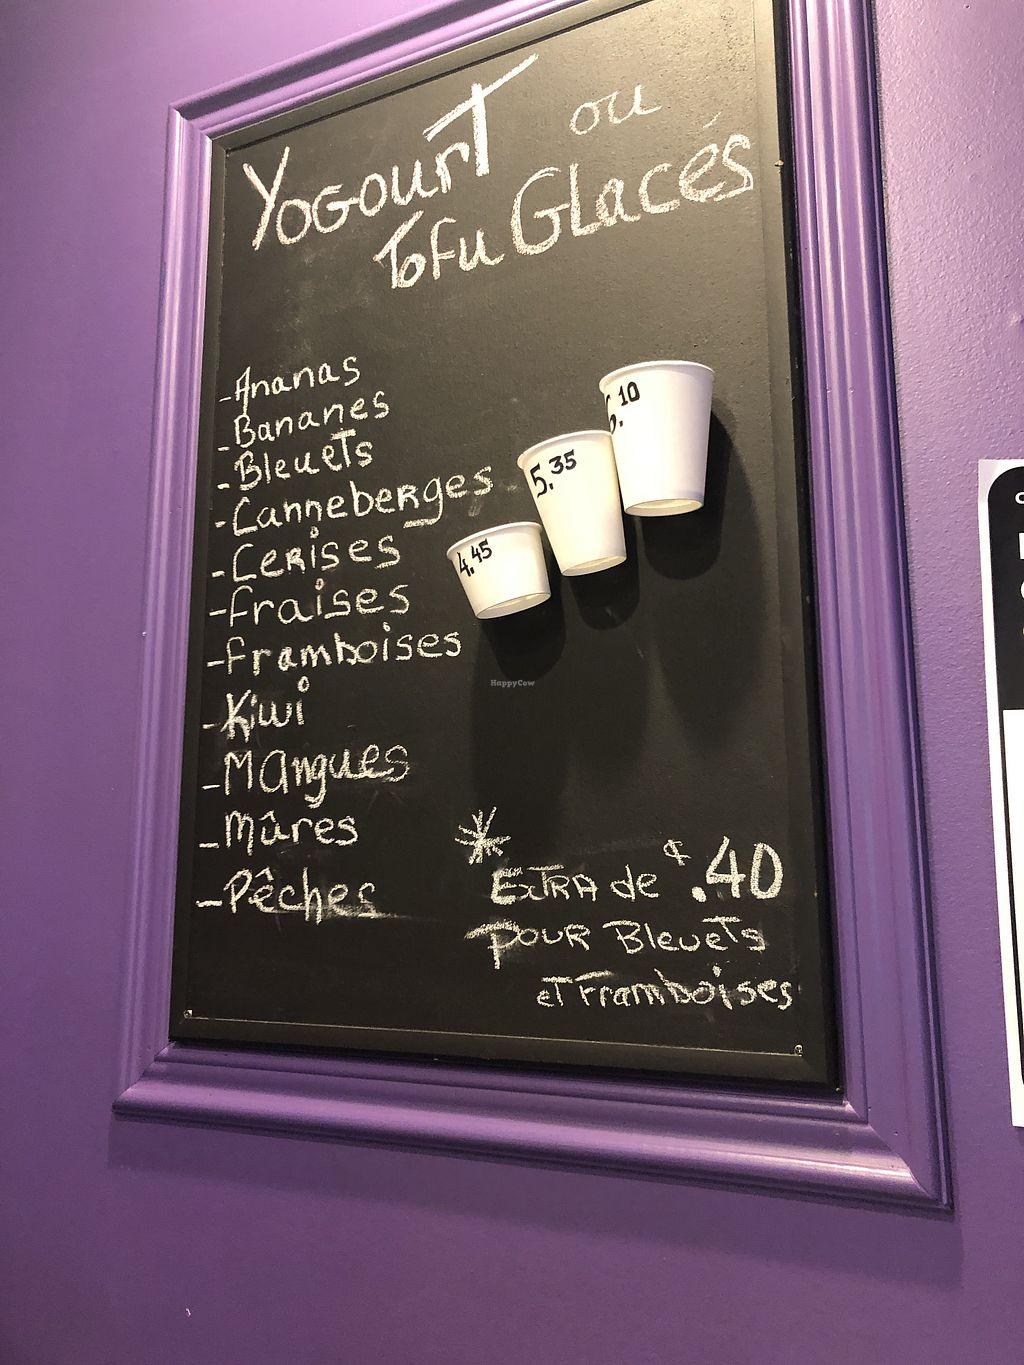 Yogourt ou
Tofu Glacés
-Ananas
-Bananes
-Bleuets
-Canneberges
-Cerises
-fraises
-framboises
-Kiwi
-Mangues
-Mûres
-Pêches
4.45
5.35
6.10
HappyCow
* Extra de ¢.40
pour Bleuets
et Framboises